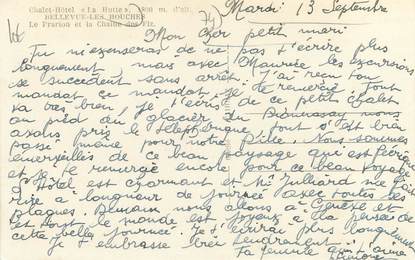 Chalet-Hôtel « La Hutte » 1800 m. d'alt.
BELLEVUE-LES HOUCHES
Le Prarion et la Chaîne des Fiz.
Mardi 13 Septembre
Mon cher petit mari
Tu m'excuseras de ne pas t'écrire plus
longuement mais avec Maurice les excursions
se succèdent sans arrêt. J'ai reçu ton
mandat ce mandat je te remercie Tout
va très bien je t'écris de ce petit chalet
au pied du glacier du Bionnassay nous
avons pris le téléphérique tout s'est bien
passé même pour notre Nous sommes
émerveillés de ce beau paysage qui est
et je te remercie encore pour ce beau voyage
L'Hôtel est charmant et Mr Julliard me fait
rire à longueur de journée avec toutes ses
blagues. Demain nous allons à Genève et
tout le monde est joyeux à la pensée de
cette belle journée. Je t'écrirai plus longuement
je t'embrasse très tendrement
Ta femme qui t'aime